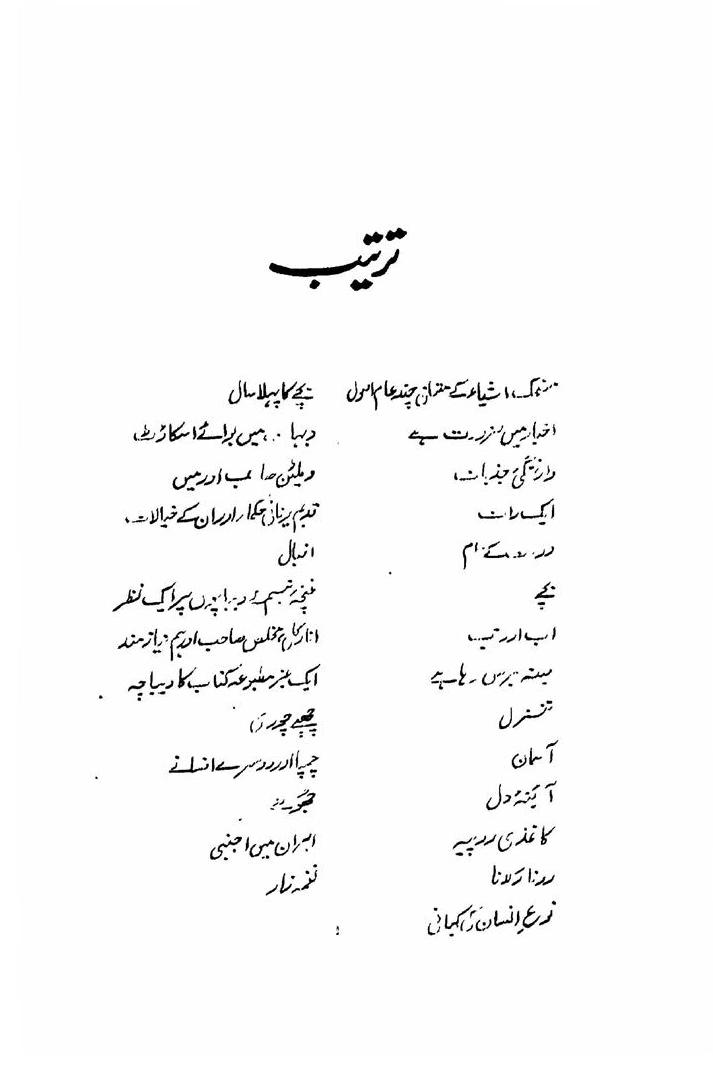 ترتیب
اشیاء کے متعلق چند عام اصول
اخبار میں ضرورت ہے
وارفتگیٔ جذبات
ایک رات
کے نام
بچے
اب اور تب
مینہ برس رہا ہے
تنزل
آسمان
آئینۂ دل
کاغذی روپیہ
رونا رلانا
نوعِ انسان کی کہانی
بچے کا پہلا سال
میں بوائے اسکاؤٹ
اور میں
قدیم یونانی حکماء اور ان کے خیالات
اقبال
غنچۂ تبسم پر ایک نظر
انارکلی مخلص صاحب اور ہم نیازمند
ایک غیر مطبوعہ کتاب کا دیباچہ
چھپے چوری
چمپا اور دوسرے افسانے
ایران میں اجنبی
نغمہ زار